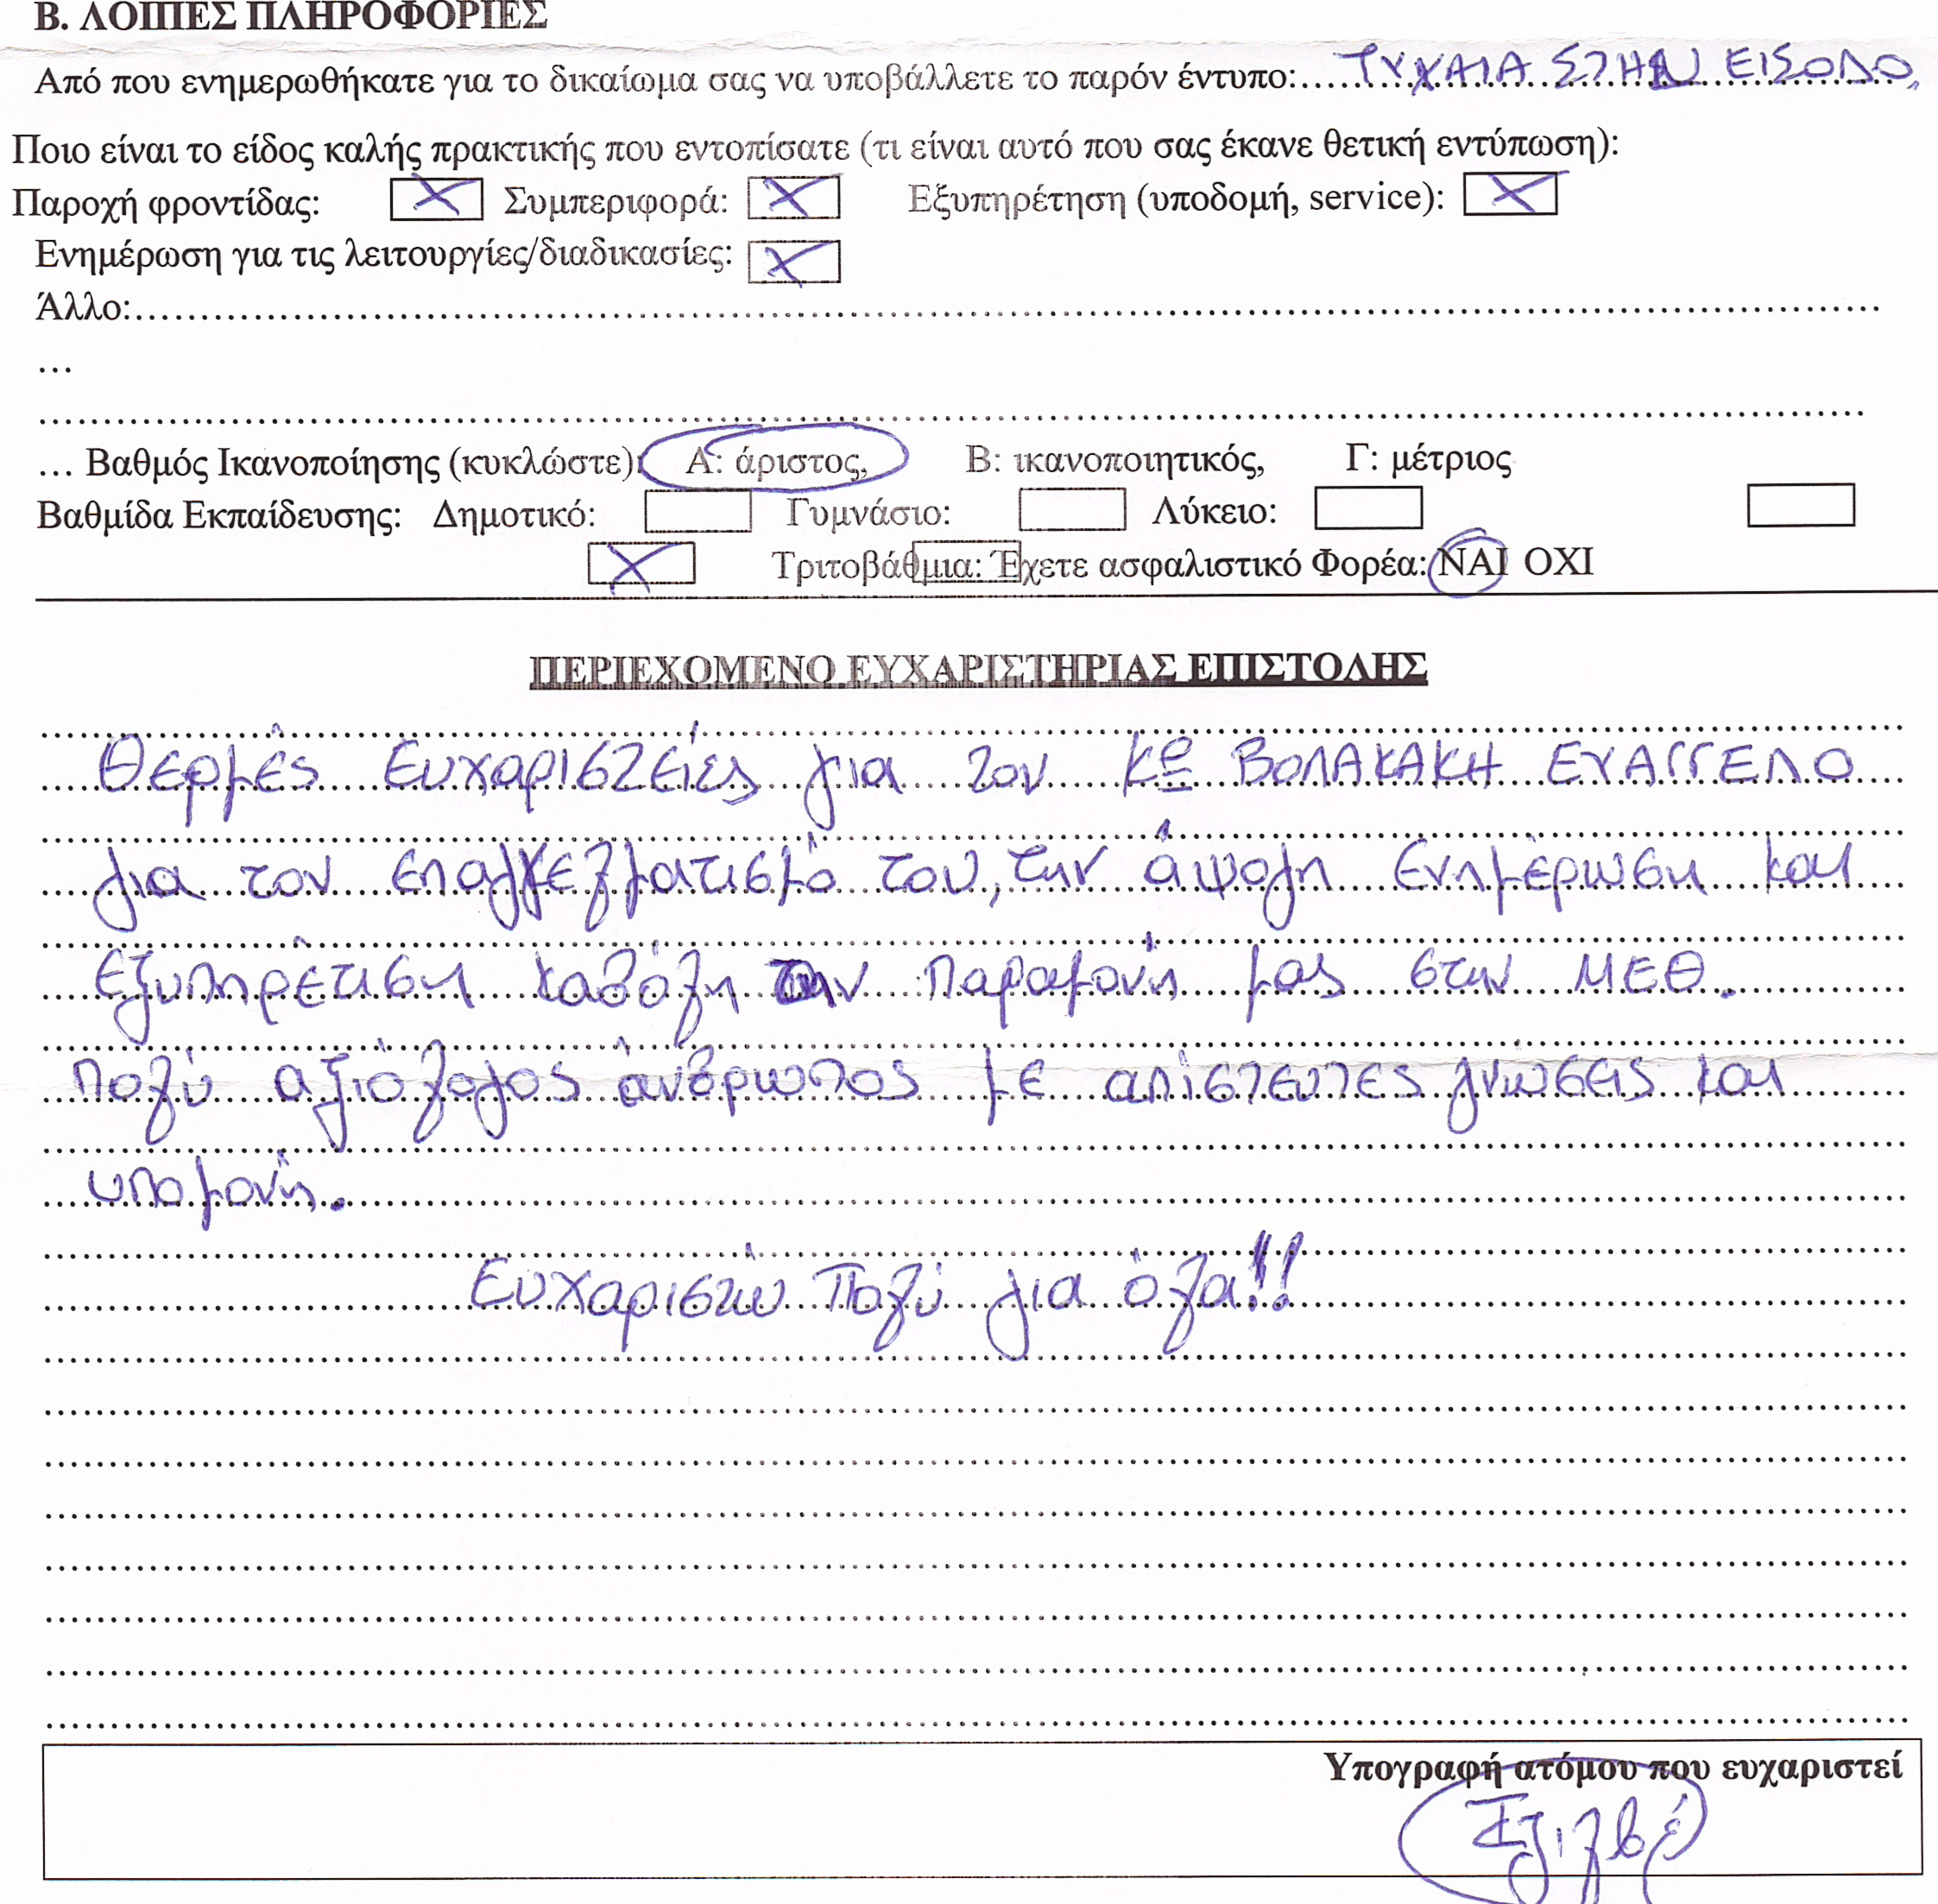 Β. ΛΟΙΠΕΣ ΠΛΗΡΟΦΟΡΙΕΣ
Από που ενημερωθήκατε για το δικαίωμα σας να υποβάλλετε το παρόν έντυπο:..... ΤΥΧΑΙΑ ΣΤΗΝ ΕΙΣΟΔΟ
Ποιο είναι το είδος καλής πρακτικής που εντοπίσατε (τι είναι αυτό που σας έκανε θετική εντύπωση):
Παροχή φροντίδας: X Συμπεριφορά: X Εξυπηρέτηση (υποδομή, service): X
Ενημέρωση για τις λειτουργίες/διαδικασίες: X
Άλλο:
...
... Βαθμός Ικανοποίησης (κυκλώστε): Α: άριστος, Β: ικανοποιητικός, Γ: μέτριος
Βαθμίδα Εκπαίδευσης: Δημοτικό: Γυμνάσιο: Λύκειο:
X Τριτοβάθμια: Έχετε ασφαλιστικό Φορέα: ΝΑΙ ΟΧΙ
ΠΕΡΙΕΧΟΜΕΝΟ ΕΥΧΑΡΙΣΤΗΡΙΑΣ ΕΠΙΣΤΟΛΗΣ
Θερμές Ευχαριστείες για τον Κο ΒΟΛΑΚΑΚΗ ΕΥΑΓΓΕΛΟ
για τον επαγγελματισμό του, την άψογη ενημέρωση και
εξυπηρέτιση καθόλη την παραμονή μας στην ΜΕΘ.
Πολύ αξιόλογος άνθρωπος με απίστευτες γνώσεις και
υπομονή.
Ευχαριστώ Πολύ για όλα!!
Υπογραφή ατόμου που ευχαριστεί